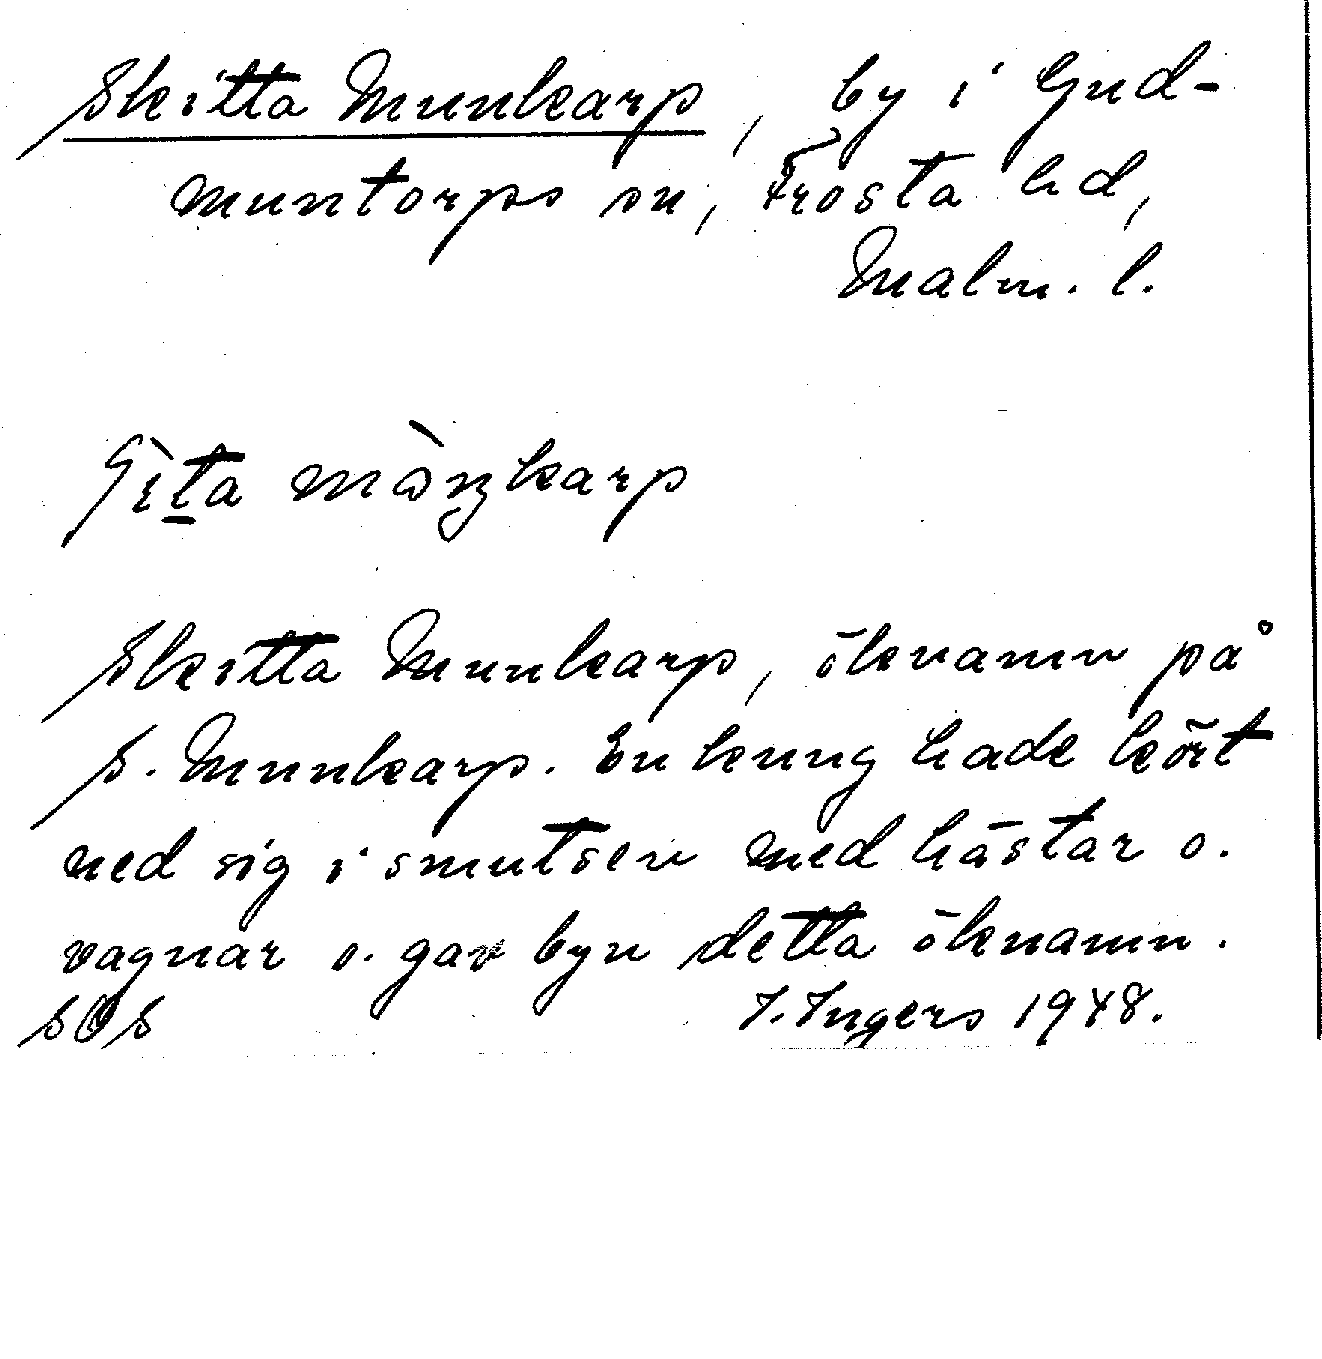 Skitta Munkarp, by i Gud-
muntorps sn, Frosta hd,
Malm. l.
ʃìt̲a mòŋkarp
Skitta Munkarp, öknamn på
S. Munkarp. En kung hade kört
ned sig i smutsen med hästar o.
vagnar o. gav byn detta öknamn.
SOS I. Ingers 1948.